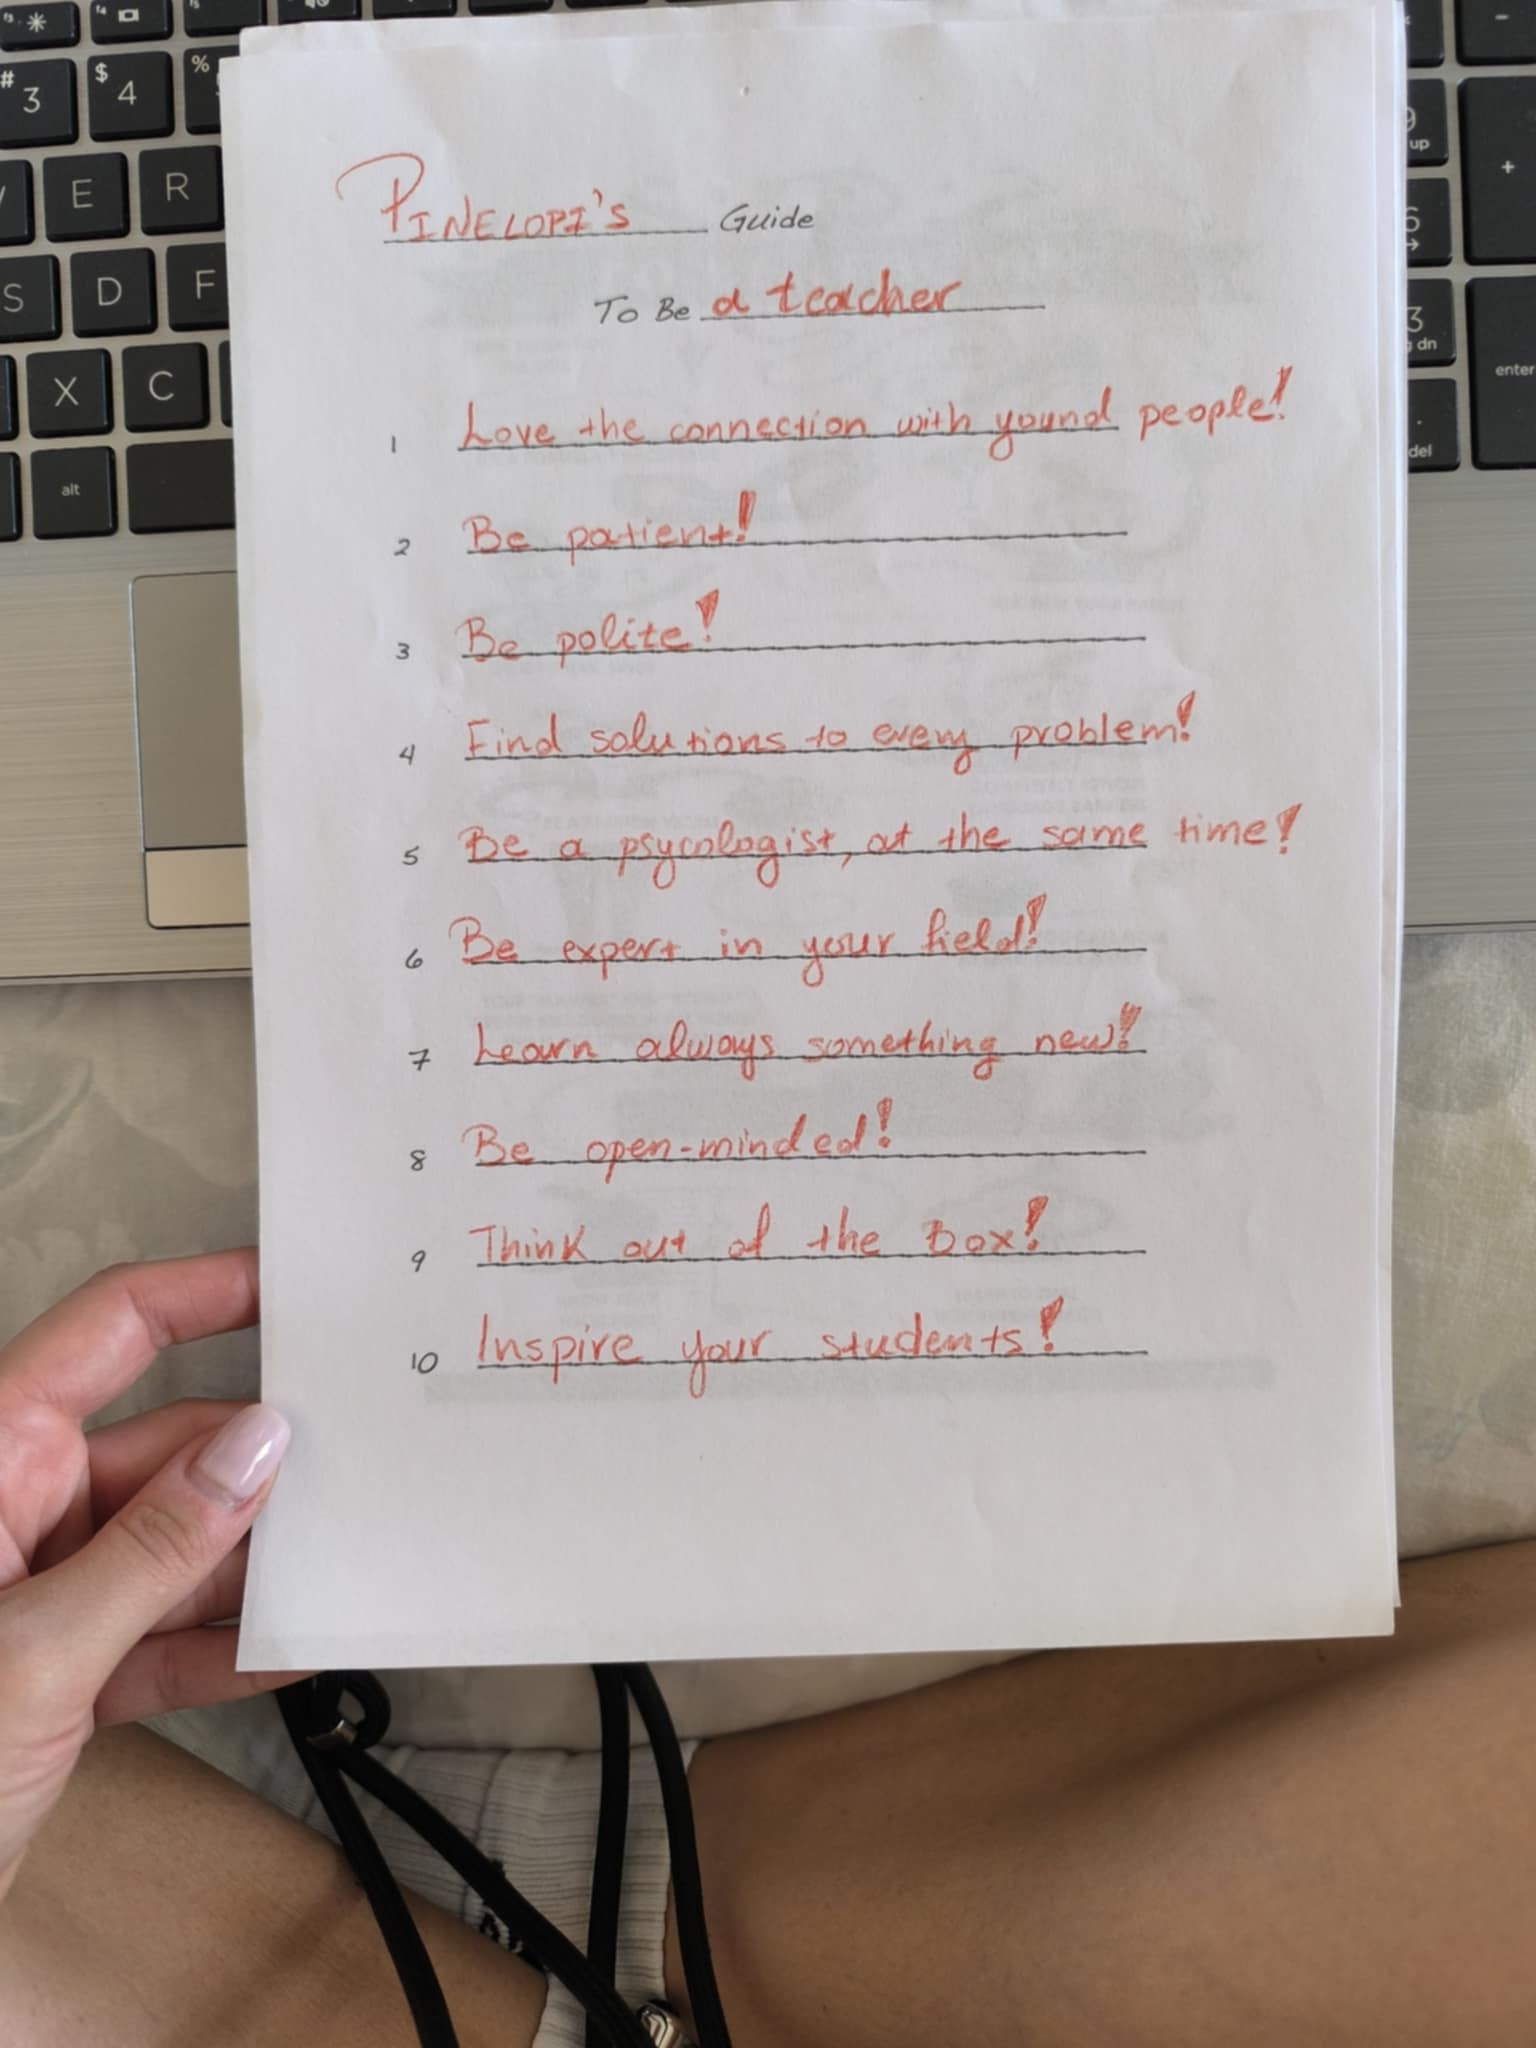 PINELOPI'S Guide
To Be a teacher
1 Love the connection with yound people!
2 Be patient!
3 Be polite!
4 Find solutions to every problem!
5 Be a psycologist, at the same time!
6 Be expert in your field!
7 Learn always something new!
8 Be open-minded!
9 Think out of the Box!
10 Inspire your students!
# 3
$ 4
%
E R
S D F
X C
alt
9
up
+
6
3
dn
enter
.
del
-